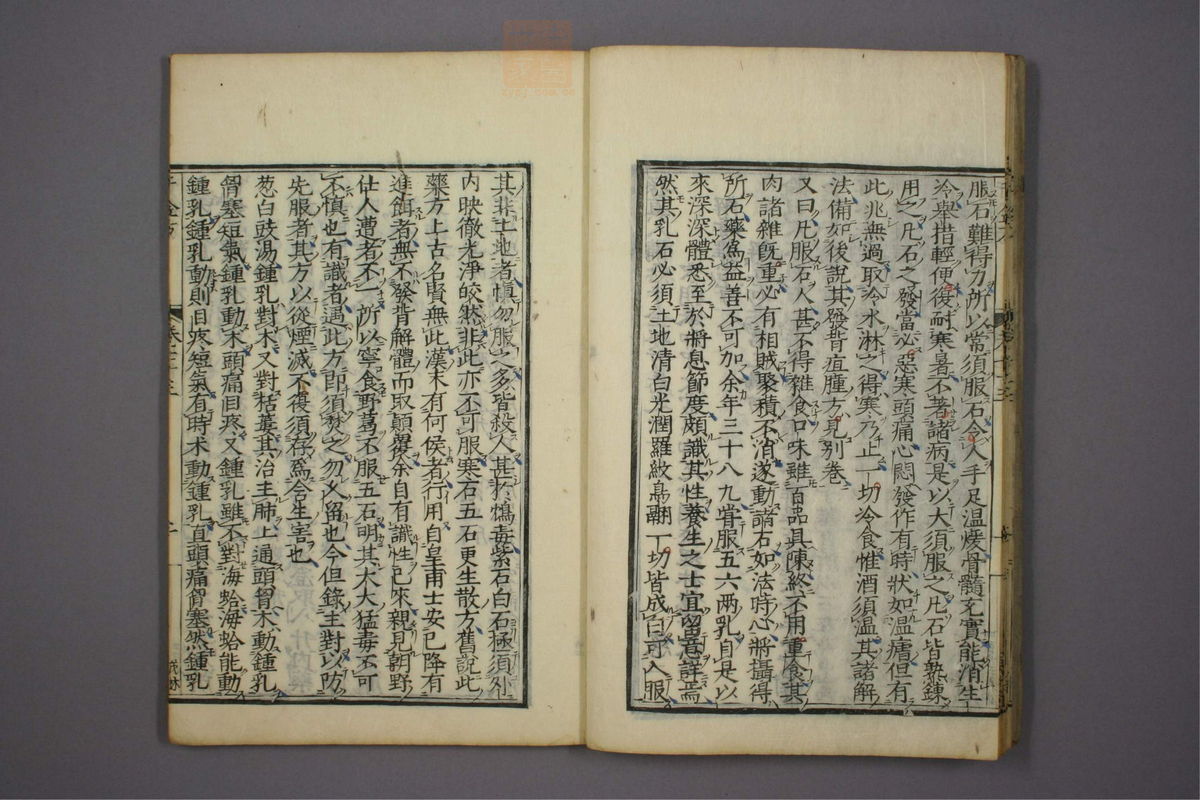 服石難得力所以常須服石令人手足温煖骨髓充實能消生
冷舉措輕便復耐寒暑不著諸病是以大須服之凡石皆熟鍊
用之凡石之發當必惡寒頭痛心悶發作有時狀如温瘧但有
此兆無過取冷水淋之得寒乃止一切冷食惟酒須温其諸解
法備如後說其發背疽腫方見別卷
又曰凡服石人甚不得雜食口味雖百品具陳終不用重食其
肉諸雜既重必有相賊聚積不消遂動諸石如法時心將攝得
所石藥爲益善不可加余年三十八九甞服五六兩乳自是以
來深深體悉至於將息節度頗識其性養生之士宜留意詳焉
然其乳石必須土地清白光潤羅紋鳥翮一切皆成白可入服
其非土地者愼勿服之多皆殺人甚於鴆毒紫石白石極須外
内映徹光淨皎然非此亦不可服寒石五石更生散方舊說此
藥方上古名賢無此漢末有何侯者行用自皇甫士安已降有
進餌者無不發背解體而取顛覆余自有識性已來親見朝野
仕人遭者不一所以寧食野葛不服五石明其大大猛毒不可
不愼也有識者遇此方即須焚之勿久留也今但錄主對以防
先服者其方以從煙滅不復須存爲含生害也
葱白豉湯鍾乳對术又對栝蔞其治主肺上通頭胷术動鍾乳
胷塞短氣鍾乳動术頭痛目疼又鍾乳雖不對海蛤海蛤能動
鍾乳鍾乳動則目疼短氣有時术動鍾乳直頭痛胷塞然鍾乳